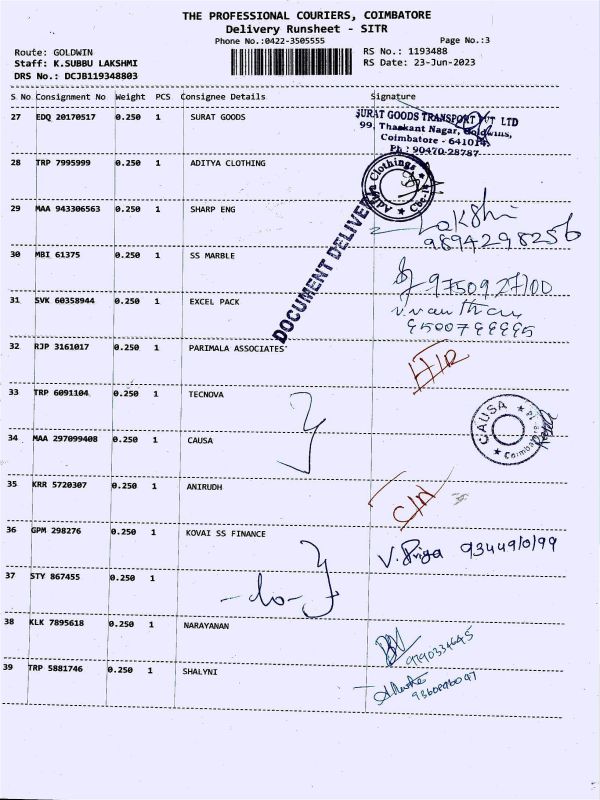 THE PROFESSIONAL COURIERS, COIMBATORE
Delivery Runsheet - SITR
Phone No.:0422-3505555
Page No.:3
Route: GOLDWIN
RS No.: 1193488
Staff: K.SUBBU LAKSHMI
RS Date: 23-Jun-2023
DRS No.: DCJB119348803
S No Consignment No Weight PCS Consignee Details Signature
27 EDQ 20170517 0.250 1 SURAT GOODS
SURAT GOODS TRANSPORT PVT LTD
99, Thaskant Nagar, Goldwins,
Coimbatore - 641014.
Ph : 90470-28787
28 TRP 7995999 0.250 1 ADITYA CLOTHING
Clothings
Cbe-14
29 MAA 943306563 0.250 1 SHARP ENG
Lakshi
9894298256
DOCUMENT DELIVER
30 MBI 61375 0.250 1 SS MARBLE
9750927100
31 SVK 60358944 0.250 1 EXCEL PACK
9500799995
32 RJP 3161017 0.250 1 PARIMALA ASSOCIATES
33 TRP 6091104 0.250 1 TECNOVA
34 MAA 297099408 0.250 1 CAUSA
CAUSA
Coimbatore
35 KRR 5720307 0.250 1 ANIRUDH
C/N
36 GPM 298276 0.250 1 KOVAI SS FINANCE
V. Priya 9344910199
37 STY 867455 0.250 1
-do-
38 KLK 7895618 0.250 1 NARAYANAN
9790334645
39 TRP 5881746 0.250 1 SHALYNI